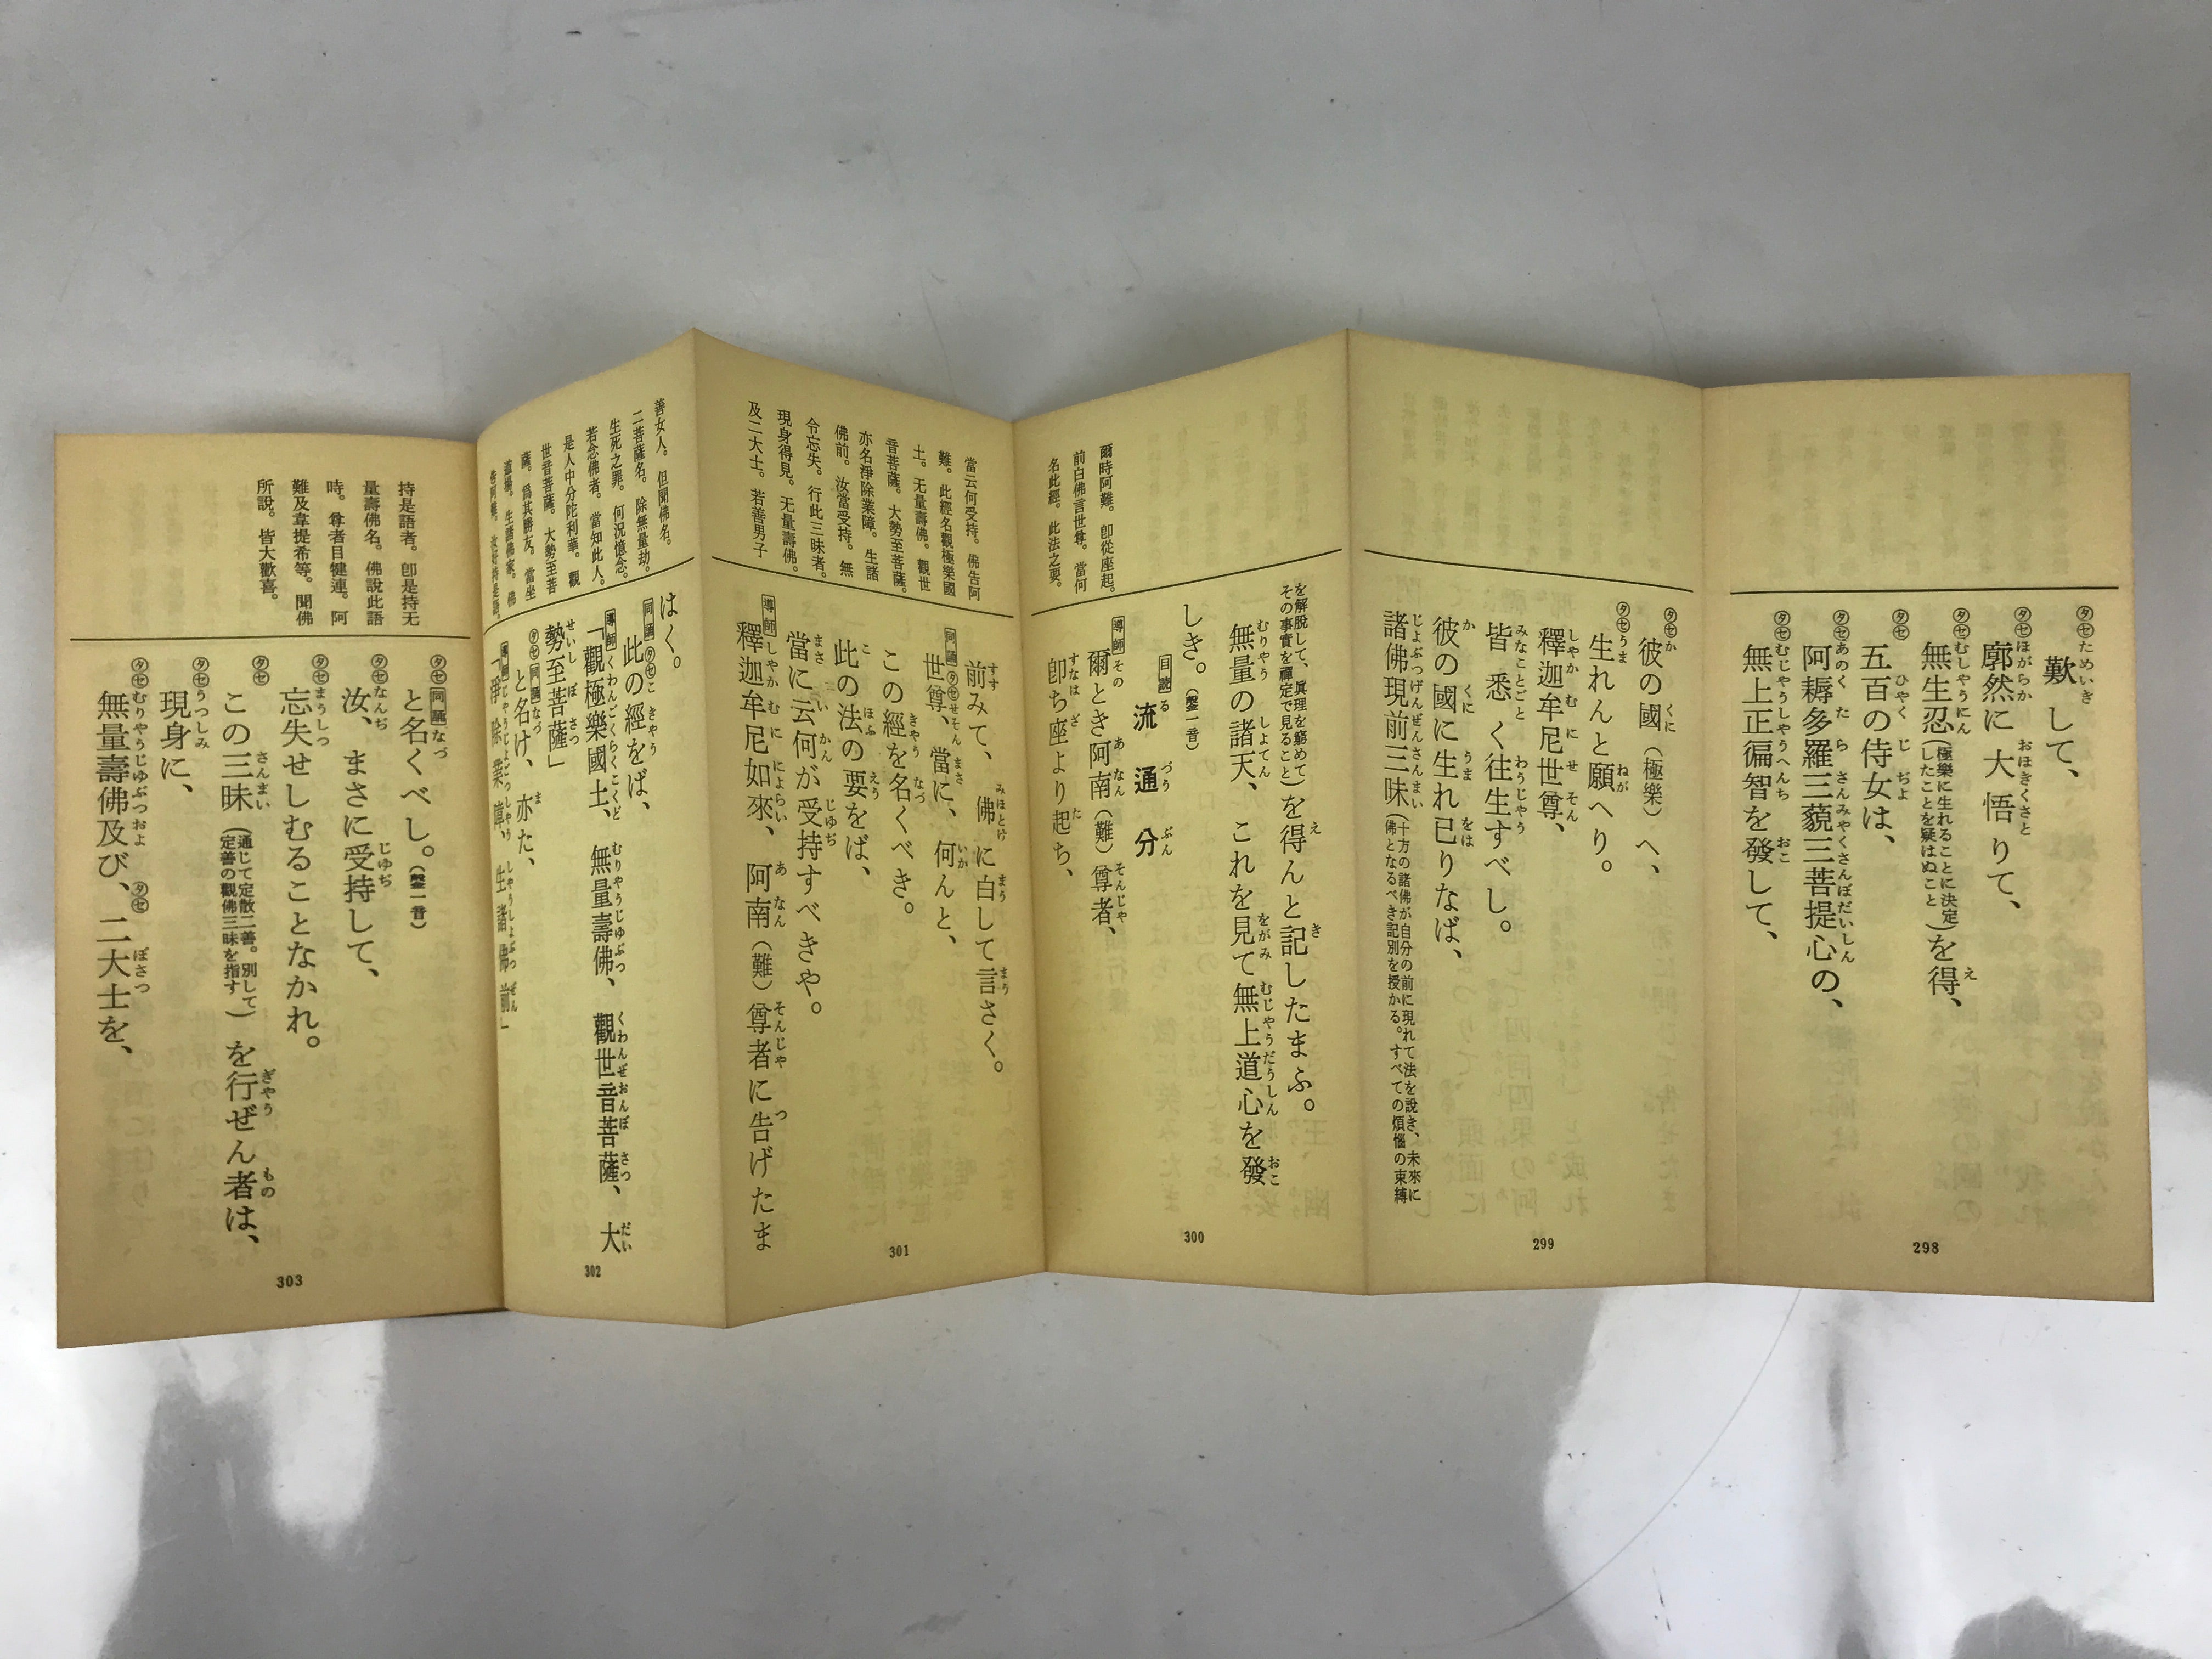 タセ 歎して、
タセ 廓然に大悟りて、
タセ 無生忍(極樂に生れることに決定したことを疑はぬこと)を得、
タセ 五百の侍女は、
タセ 阿耨多羅三藐三菩提心の、
タセ 無上正徧智を發して、
298
タセ 彼の國(極樂)へ、
タセ 生れんと願へり。
釋迦牟尼世尊、
皆悉く往生すべし。
彼の國に生れ已りなば、
諸佛現前三昧(十方の諸佛が自分の前に現れて法を說き、未來に佛となるべき記別を授かる。すべての煩惱の束縛
299
を解脫して、眞理を窮めてその事實を禪定で見ること)を得んと記したまふ。
無量の諸天、これを見て無上道心を發
しき。(磬一音)
目讀 流通分
導師 爾とき阿南(難)尊者、
卽ち座より起ち、
爾時阿難。卽從座起。
前白佛言世尊。當何
名此經。此法之要。
300
前みて、佛に白して言さく。
同誦 タセ 世尊、當に、何んと、
この經を名くべき。
此の法の要をば、
當に云何が受持すべきや。
導師 釋迦牟尼如來、阿南(難)尊者に告げたま
當云何受持。佛告阿
難。此經名觀極樂國
土。无量壽佛。觀世
音菩薩。大勢至菩薩。
亦名淨除業障。生諸
佛前。汝當受持。無
令忘失。行此三昧者。
現身得見。无量壽佛。
及二大士。若善男子
301
はく。
同誦 タセ 此の經をば、
導師 「觀極樂國土、無量壽佛、觀世音菩薩、大
勢至菩薩」
タセ 同誦 と名け、亦た、
導師 「淨除業障、生諸佛前」
善女人。但聞佛名。
二菩薩名。除無量劫。
生死之罪。何況憶念。
若念佛者。當知此人。
是人中分陀利華。觀
世音菩薩。大勢至菩
薩。爲其勝友。當坐
道場。生諸佛家。佛
告阿難。汝好持是語。
302
タセ 同誦 と名くべし。(磬一音)
タセ 汝、まさに受持して、
タセ 忘失せしむることなかれ。
タセ この三昧(通じて定散二善。別して定善の觀佛三昧を指す)を行ぜん者は、
タセ 現身に、
タセ 無量壽佛及び、タセ 二大士を、
持是語者。卽是持无
量壽佛名。佛說此語
時。尊者目犍連。阿
難及韋提希等。聞佛
所說。皆大歡喜。
303